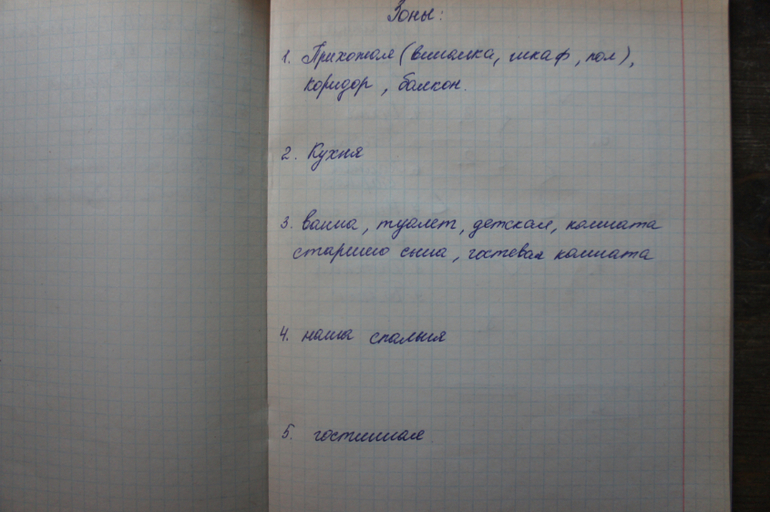 Зоны:
1. Прихожая (вишалка, шкаф, пол),
коридор, балкон.
2. Кухня
3. ванна, туалет, детская, комната
старшего сына, гостевая комната
4. наша спальня
5. гостинная